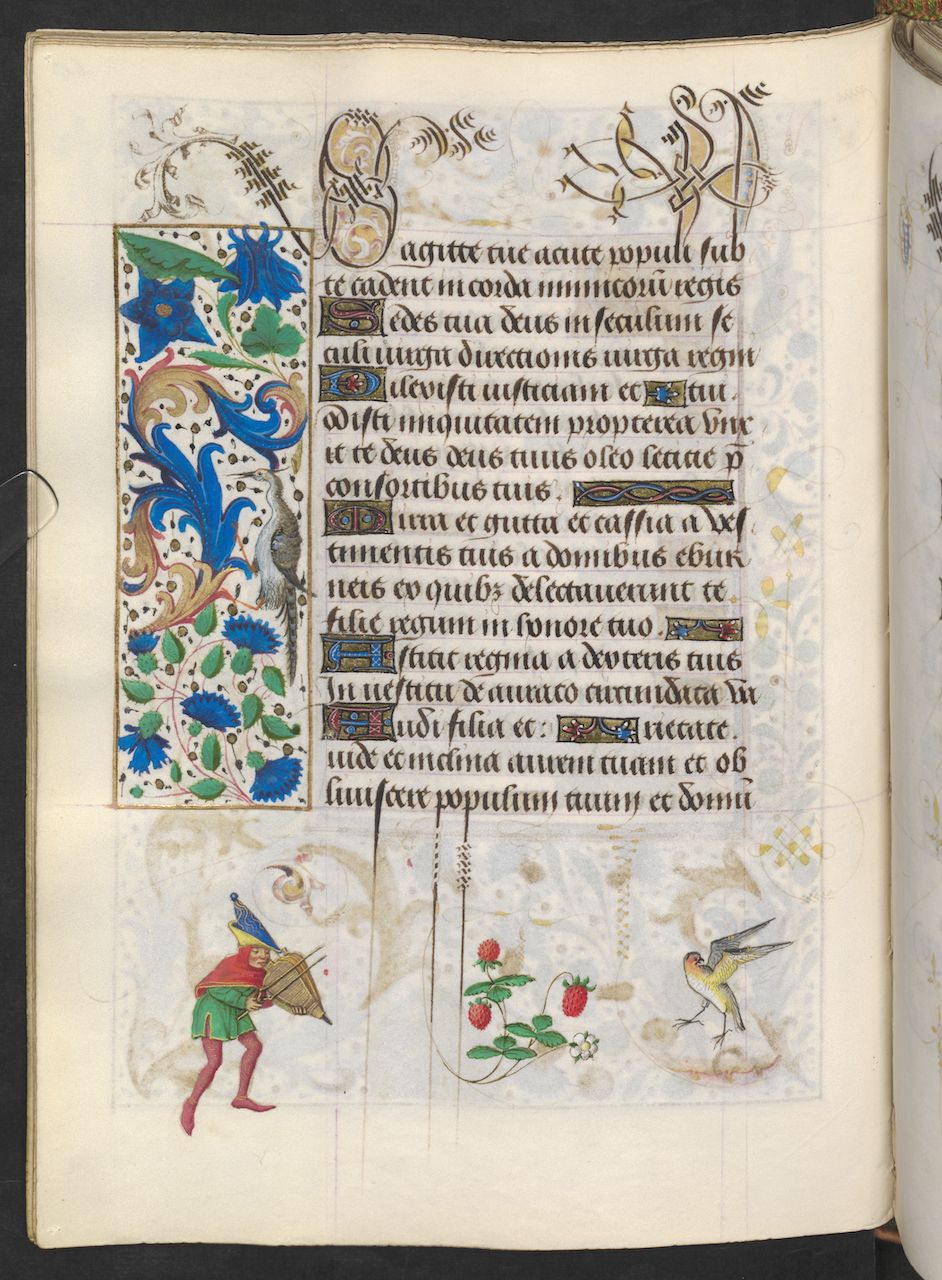 Sagitte tue acute populi sub
te cadent in corda inimicorū regis
Sedes tua deus in seculum se
culi uirga directionis uirga regni
Dilexisti iusticiam et tui.
odisti iniquitatem propterea vnx
it te deus deus tuus oleo leticie p̄
consortibus tuis.
Mirra et gutta et cassia a ves
timentis tuis a domibus ebur
neis ex quibꝫ delectauerunt te
filie regum in honore tuo.
Astitit regina a dextris tuis
In uestitu de aurato circumdata va
Audi filia et: rietate.
uide et inclina aurem tuam et ob
liuiscere populum tuum et domū